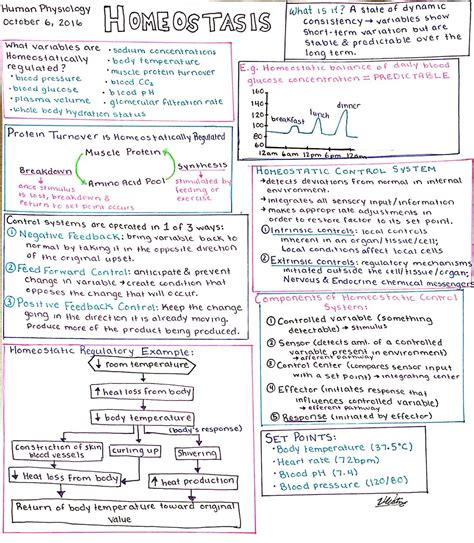 Human Physiology
October 6, 2016
HOMEOSTASIS
What is it? A state of dynamic
consistency → variables show
short-term variation but are
stable & predictable over the
long term.
What variables are
Homeostatically
regulated?
• blood pressure
• blood glucose
• plasma volume
• whole body hydration status
• sodium concentrations
• body temperature
• muscle protein turnover
• blood CO2
• blood pH
• glomerular filtration rate
E.g. Homeostatic balance of daily blood
glucose concentration = PREDICTABLE
160
140
120
100
80
60
breakfast
lunch
dinner
12am 6am 12pm 6pm 12am
Protein Turnover is Homeostatically Regulated
Muscle Protein
Breakdown
once stimulus
is loss, breakdown &
return to set point occurs
Amino Acid Pool
Synthesis
stimulated by
feeding or
exercise
HOMEOSTATIC CONTROL SYSTEM
→ detects deviations from normal in internal
environment.
→ integrates all sensory input/information
→ makes appropriate adjustments in
order to restore factor to its set point.
① Intrinsic controls: local controls
inherent in an organ/tissue/cell;
Local conditions affect local cells
② Extrinsic controls: regulatory mechanisms
initiated outside the cell/tissue/organ;
Nervous & Endocrine chemical messengers
Control systems are operated in 1 of 3 ways:
① Negative Feedback: bring variable back to
normal by taking it in the opposite direction
of the original upset.
② Feed Forward Control: anticipate & prevent
change in variable → create condition that
opposes the change that will occur.
③ Positive Feedback Control: Keep the change
going in the direction it is already moving.
Produce more of the product being produced.
Components of Homeostatic Control
System:
① Controlled variable (something
detectable) → stimulus
② Sensor (detects amt. of a controlled
variable present in environment)
→ afferent pathway
③ Control Center (compares sensor input
with a set point) → integrating center
④ Effector (initiates response that
influences controlled variable)
→ efferent pathway
⑤ Response (initiated by effector)
Homeostatic Regulatory Example:
↓ room temperature
↑ heat loss from body
↓ body temperature
(body's response)
constriction of skin
blood vessels
curling up
Shivering
↓ Heat loss from body
↑ heat production
Return of body temperature toward original
value
SET POINTS:
• Body temperature (37.5°C)
• Heart rate (72bpm)
• Blood pH (7.4)
• Blood pressure (120/80)